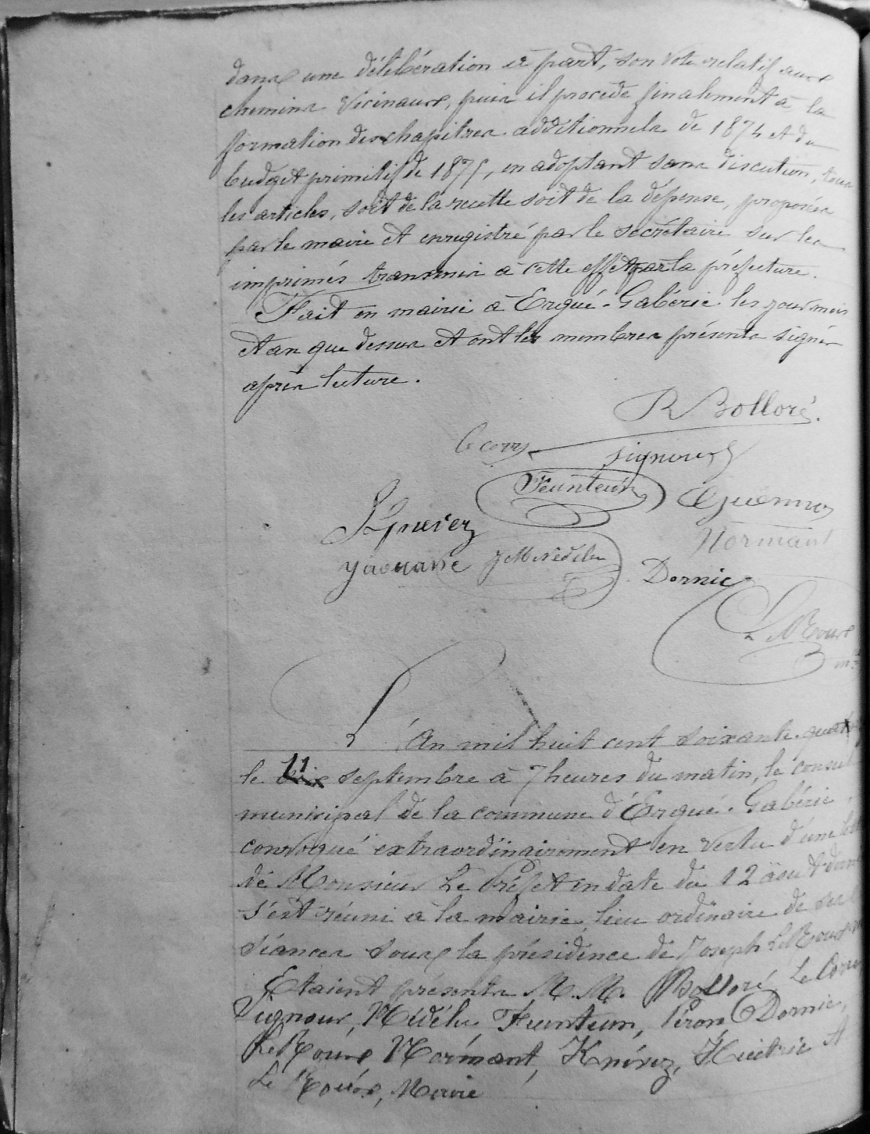 dans une délibération à part, son vote relatif aux
chemins vicinaux, puis il procède finalement à la
formation des chapitres additionnels de 1874 et du
budget primitif de 1875, en adoptant sans discution, tous
les articles, soit de la recette soit de la dépense, proposés
par le maire et enregistré par le secrétaire sur les
imprimés transmis à cette effet par la préfecture.
Fait en mairie à Ergué-Gabéric les jour mois
et an que dessus et ont les membres présents signés
après lecture.
R Bolloré.
Le corre
Signour
Feunteun
Guennou
Kgnevez
Normant
yaouanc
Nédélec
Dornic
Le Roux
L'An mil huit cent soixante quat
le 11 septembre à 7 heures du matin, le conseil
municipal de la commune d'Ergué-Gabéric,
convoqué extraordinairement en vertu d'une
de Monsieur Le Préfet en date du 12 août
s'est réuni à la mairie, lieu ordinaire de ses
séances sous la présidence de Joseph Le Roux
Etaient présents M.M. Bolloré, Le Corre
Signour, Nédélec, Feunteun, Péron, Dornic,
Le Roux, Normant, Huitric et
Le Roux, Maire